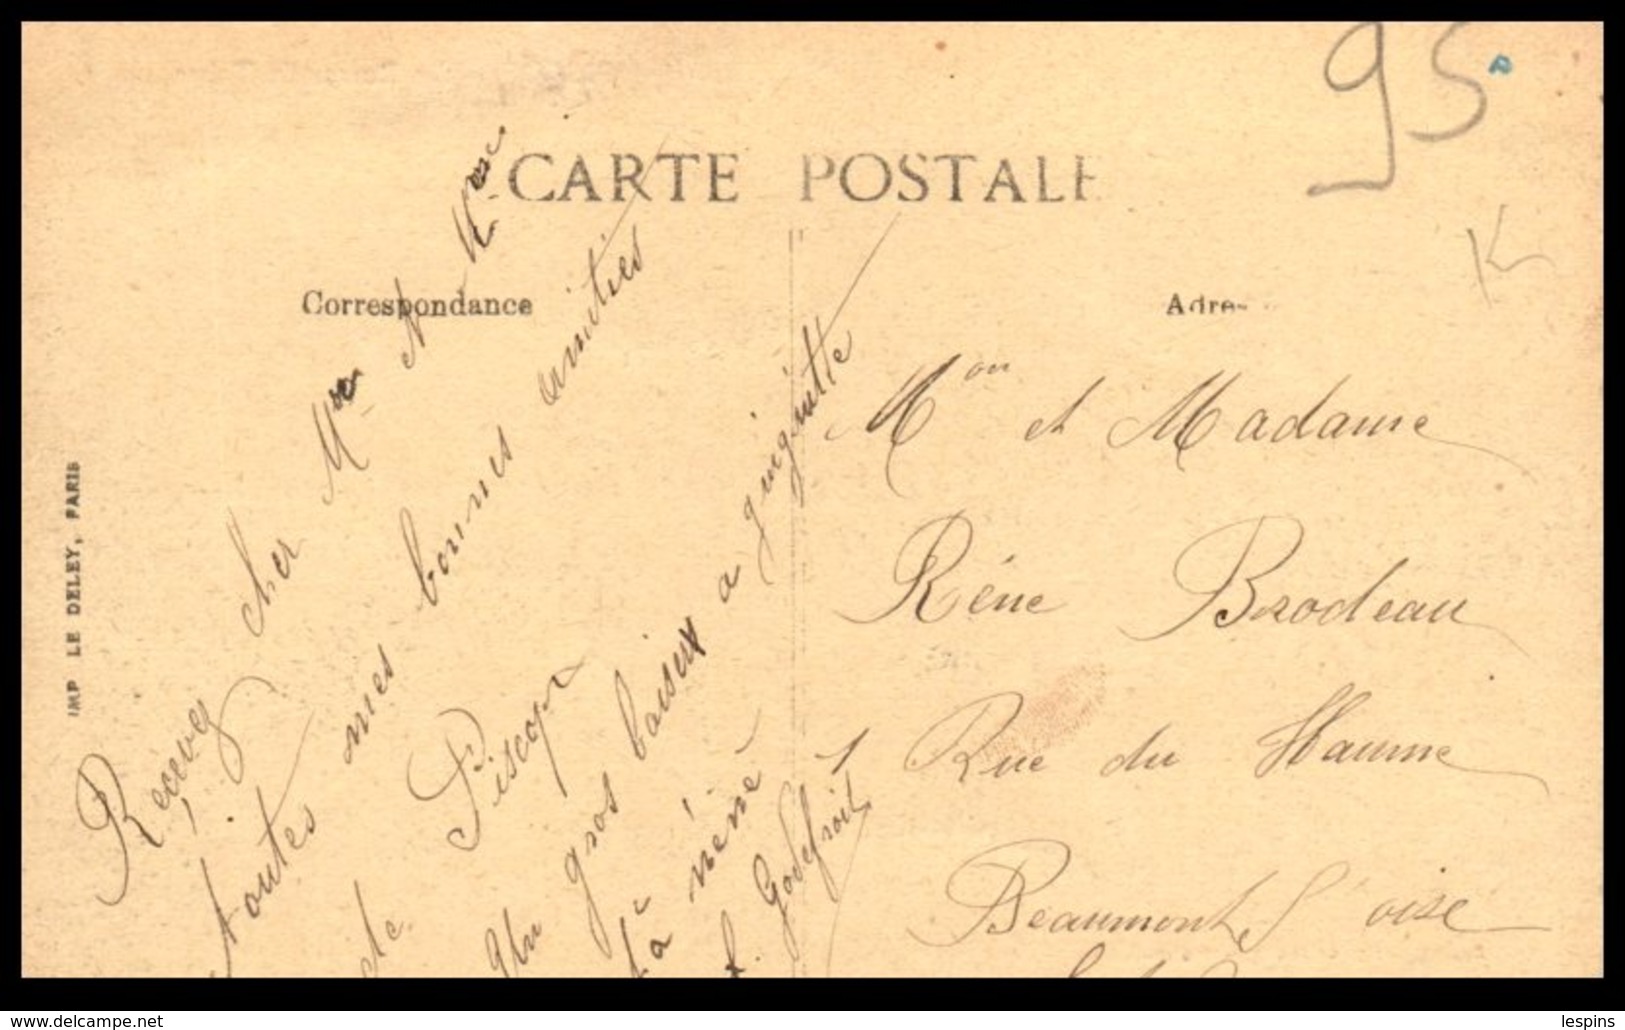 95
CARTE POSTALE
K
Correspondance
Adres
IMP LE DELEY, PARIS
Reçevez cher Mr et Mme
toutes mes bonnes amitiés
de Piscop
Un gros baiser a guiguitte
et à mémé
Godefroit
Mon et Madame
Réne Brodeau
1 Rue du Haume
Beaumont S oise
www.delcampe.net
lespins